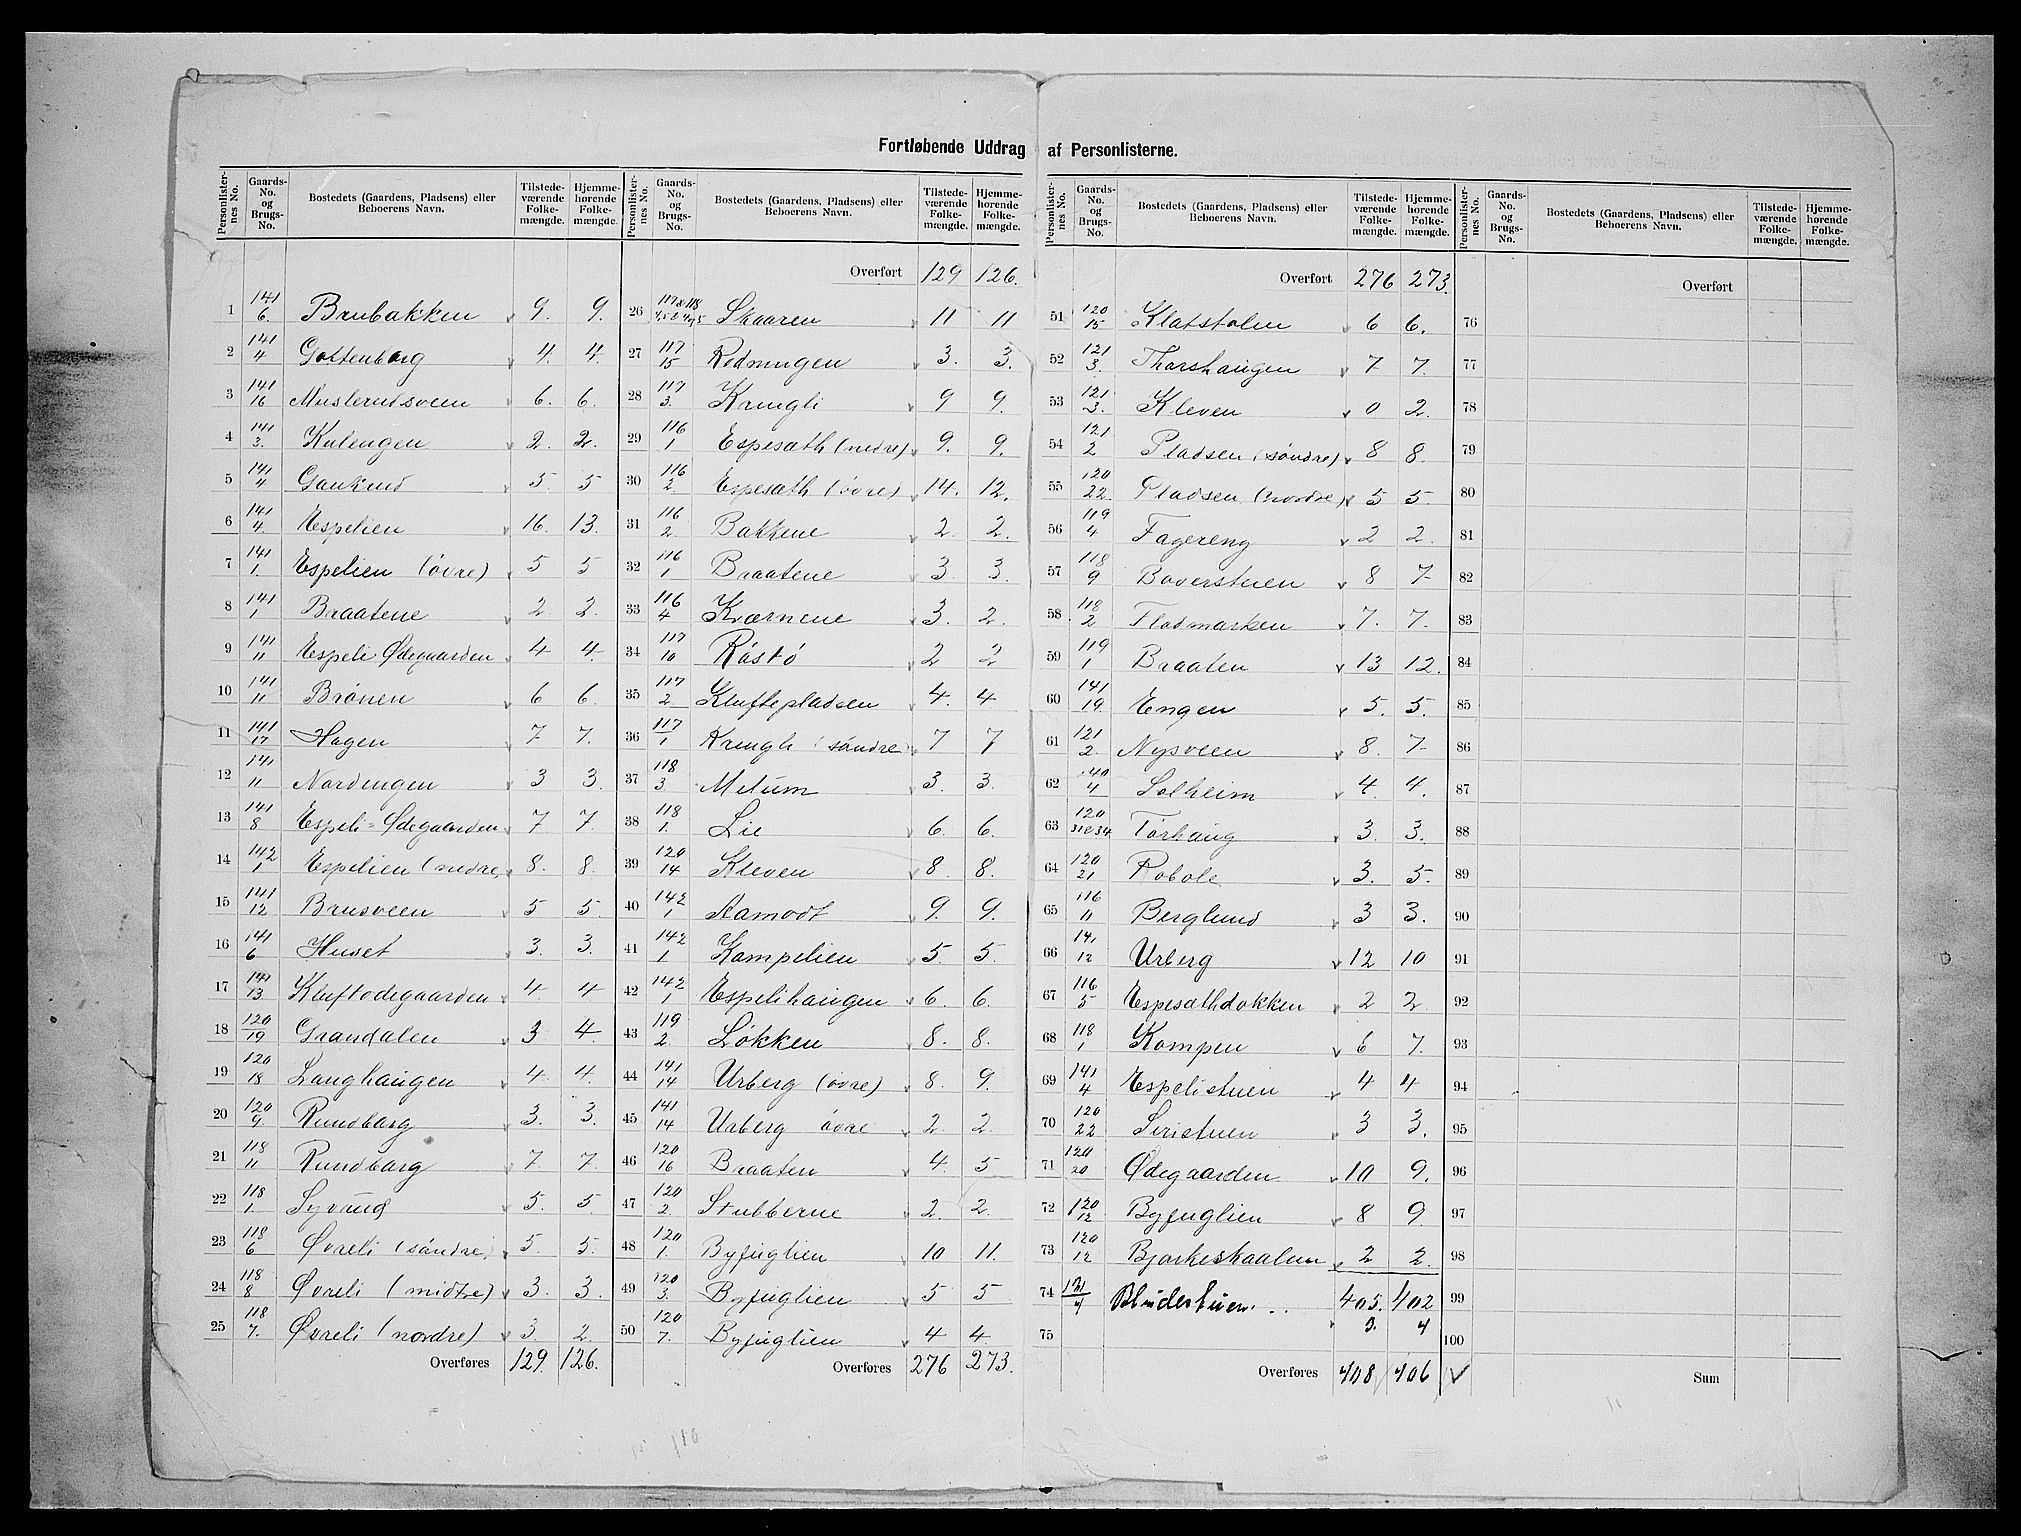 Fortløbende Uddrag af Personlisterne.
Personlisternes No. | Gaards-No. og Brugs-No. | Bostedets (Gaardens, Pladsens) eller Beboerens Navn. | Tilstedeværende Folkemængde. | Hjemmehørende Folkemængde.
1 141/6. Brubakken 9. 9.
2 141/4 Gottenborg 4. 4.
3 141/16 Muslerudsveen 6. 6.
4 141/3. Kulengen 2. 2.
5 141/4 Gaukrud 5. 5
6 141/4. Espelien 16. 13.
7 141/1. Espelien (övre) 5 5
8 141/1 Braatene 2. 2.
9 141/11 Espeli Ødegaarden 4 4.
10 141/11 Brönen 6 6.
11 141/17 Hagen 7 7.
12 141/11 Nordengen 3 3.
13 141/8 Espeli=Ødegaarden 7 7.
14 142/1 Espelien (nedre) 8. 8.
15 141/12 Brusveen 5 5.
16 141/6 Huset 3. 3.
17 141/13 Kluftödegaarden 4. 4
18 120/19 Grandalen 3 4.
19 120/18 Langhaugen 4 4.
20 120/9 Rundbarg 3. 3.
21 118/11 Rundbarg 7 7.
22 118/1. Syvrud 5. 5.
23 118/6 Øvreli (söndre) 5. 5.
24 118/8 Øvreli (midtre) 3. 3.
25 118/7. Øvreli (nordre) 3. 2.
Overføres 129. 126.
Overført 129 126.
26 117 & 118 Skaaren 11 11
27 117/15 Rødningen 3. 3.
28 117/3. Kringli 9 9.
29 116/1 Espesæth (nedre) 9. 9.
30 116/2. Espesæth (övre) 14. 12.
31 116/2. Bakkene 2 2.
32 116/1 Braatene 3 3.
33 116/4 Kværnene 3. 2.
34 117/10 Röstö 2 2
35 117/2. Kluftepladsen 4. 4
36 117/1 Kringli (söndre) 7 7
37 118/3 Melum 3. 3.
38 118/1. Lie 6. 6.
39 120/14 Kleven 8. 8.
40 142/1 Aamodt 9. 9.
41 142/1 Kampelien 5. 5.
42 142/1 Espelihaugen 6. 6.
43 119/2. Løkken 8. 8.
44 141/14 Urberg (övre) 8. 9.
45 141/14 Urberg övre 2. 2.
46 120/16 Braaten 4. 5
47 120/2 Stubberne 2. 2.
48 120/1. Byfuglien 10 11.
49 120/3. Byfuglien 5 5
50 120/7. Byfuglien 4 4.
Overføres 276 273.
Overført 276 273.
51 120/15 Klatstolen 6 6.
52 121/3. Thorshaugen 7 7.
53 121/3. Kleven 0 2.
54 121/2 Pladsen (söndre) 8 8.
55 120/22. Pladsen (nordre) 5 5.
56 119/4 Fagereng 2 2.
57 118/9 Boverstuen 8 7
58 118/2 Fladmarken 7. 7.
59 119/1 Braaten 13 12.
60 141/19. Engen 5. 5.
61 121/2. Nysveen 8. 7
62 140/4 Solheim 4. 4.
63 120/31 & 34 Torhaug 3. 3.
64 120/21 Robole 3. 5.
65 116/11 Berglund 3 3.
66 141/12 Urberg 12 10
67 116/5 Espesæthdokken 2 2.
68 118/1 Kampen 6 7.
69 141/4 Espelistuen 4 4
70 120/22 Siristuen 3 3.
71 120/20 Ødegaarden 10 9.
72 120/12 Byfuglien 8 9.
73 120/12 Bjørkeskaalen 2 2.
405. 402
74 121/4 3. 4
75
Overføres 408 406
Overført
76
77
78
79
80
81
82
83
84
85
86
87
88
89
90
91
92
93
94
95
96
97
98
99
100
Sum